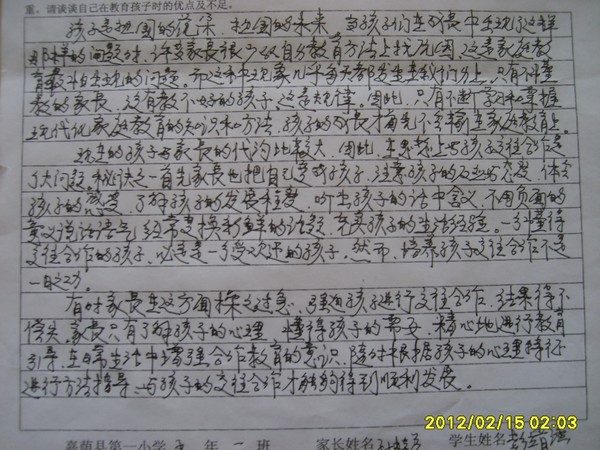 重。请谈谈自己在教育孩子时的优点及不足。
孩子是祖国的花朵,祖国的未来,当孩子们在成长中出现这样
那样的问题时,许多家长很少从自身教育方法上找原因,这是家庭教
育最初出现的问题。而这种现实几乎每天都发生在我们身上,只有不会
教的家长,没有教不好的孩子,这是规律。因此,只有不断学习和掌握
现代化家庭教育的知识和方法,孩子的成长才能不会输在家庭教育上。
现在的孩子与家长的代沟比较大,因此,在思想上与孩子交往合作是
个大问题。秘诀之一首先家长也把自己当成孩子,注意孩子的 态度,体会
孩子的感受,了解孩子的发展程度,听出孩子的话中含义,不用负面的
意义说话语气,经常变换新鲜的话题,充实孩子的生活经验。一个懂得
交往合作的孩子,必定是一个受欢迎的孩子。然而,培养孩子交往合作不是
一日之功。
有时家长在这方面操之过急,强迫孩子进行交往合作,结果得不
偿失。家长只有了解孩子的心理,懂得孩子的需要,精心地进行教育
引导,在日常生活中增强合作教育的意识,随时根据孩子的心理特征
进行方法指导,与孩子的交往合作才能够得到顺利发展。
2012/02/15 02:03
嘉荫县第一小学 年 一 班 家长姓名 学生姓名